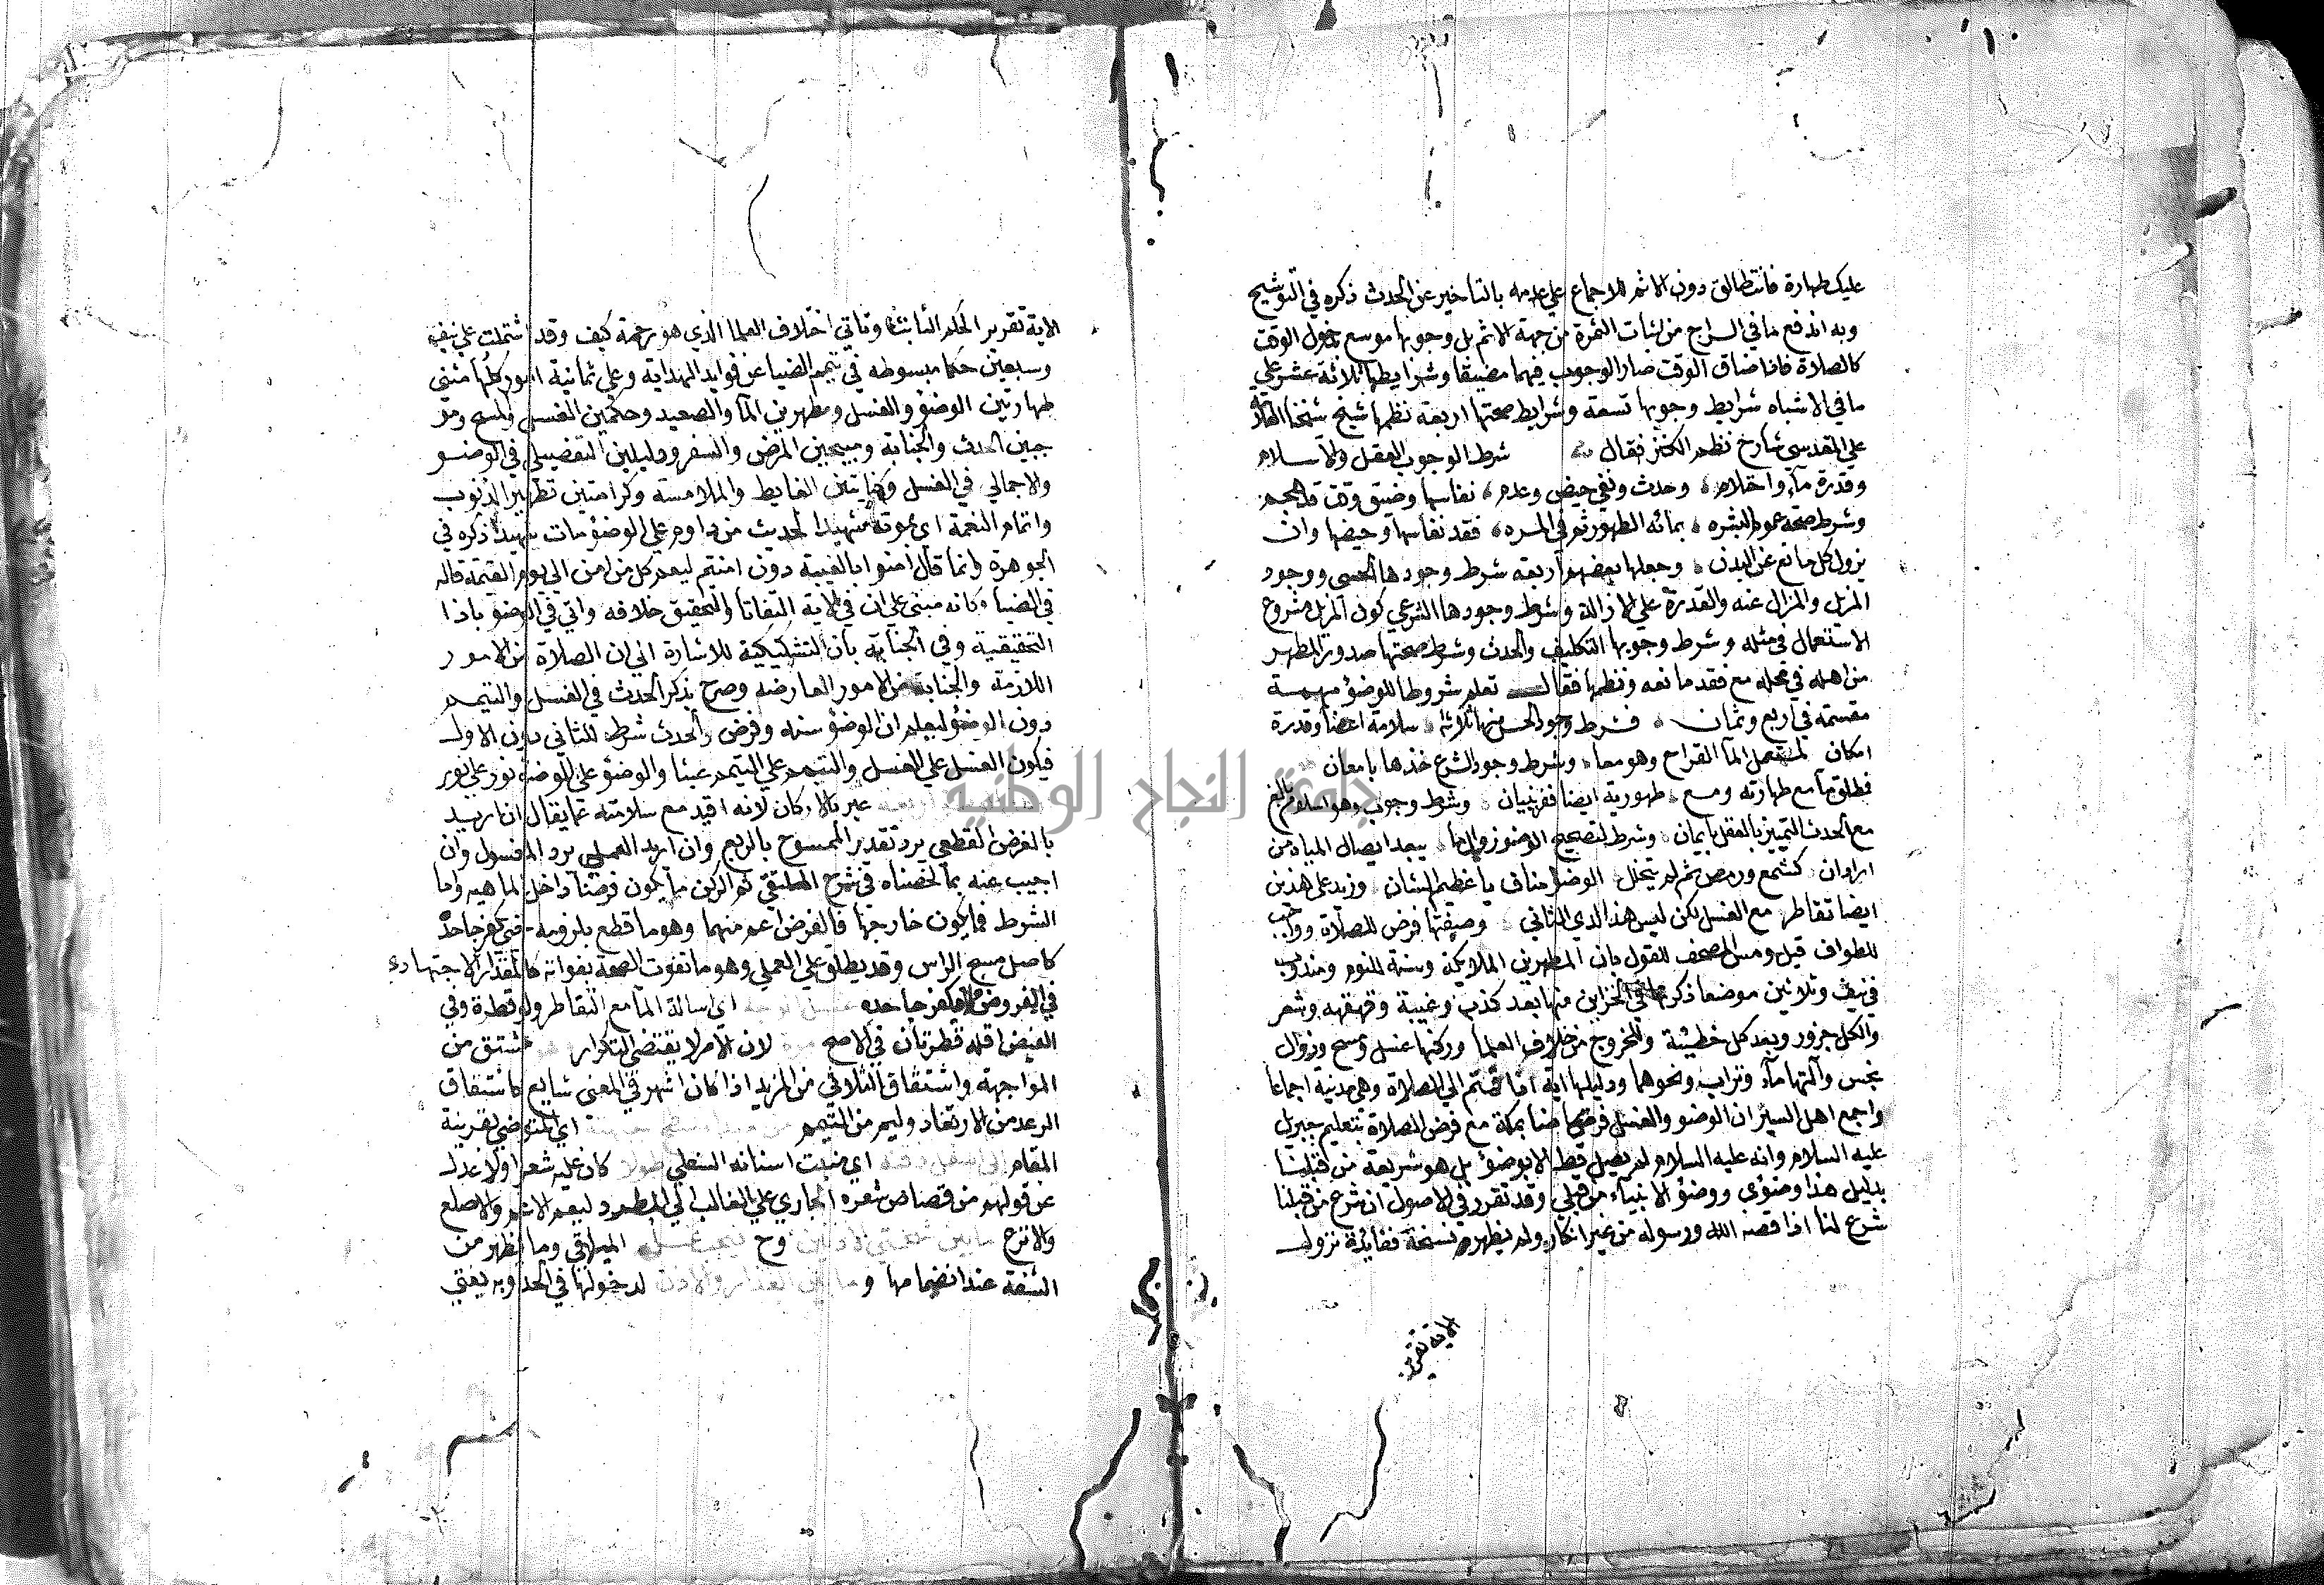 عليك طهارة فانت طالق دون الاثم للاجماع على عدمه بالتاخير عن الحدث ذكره في التوشيح
وبه اندفع ما في السراج من اثبات الثمرة من جهة الاثم بل وجوبها موسع بدخول الوقت
كالصلاة فاذا ضاق الوقت صار الوجوب فيهما مضيقا وشرايطها ثلاثة عشر علي
ما في الاشباه شرايط وجوبها تسعة وشرايط صحتها اربعة نظمها شيخ شيخنا العلامة
علي المقدسي شارح نظم الكنز فقال شرط الوجوب العقل والاسلام
وقدرة مآء واحتلام وحدث ونفي حيض وعدم نفاسها وضيق وقت قد هجم
وشرط صحة عموم البشره بمائه الطهور ثم في المره فقد نفاسها وحيضها وان
يزول كل مانع عن البدن وجعلها بعضهم اربعة شرط وجودها الحسى ووجود
المزيل والمزال عنه والقدرة علي الازالة وشرط وجودها الشرعي كون المزيل مشروع
الاستعمال في مثله وشرط وجوبها التكليف والحدث وشرط صحتها صدور المطهر
من اهله في محله مع فقد مانعه ونظمها فقال تعلم شروطا للوضوء مهمة
مقسمة في اربع وثمان فشرط وجود الحس منها ثلاثة سلامة اعضا وقدرة
امكان لمستعمل المآ القراح وهو معا وشرط وجود الشرع خذها بامعان
فمطلق ما مع طهارته ومع طهورية ايضا ففز ببيان وشرط وجوب وهو اسلام بالغ
مع الحدث التمييز بالعقل يا عان وشرط لتصحيح الوضوء زوال ما يبعد ايصال المياه من
ادران كشمع ورمص ثم لم يتخلل الوضوء مناف يا عظيم الشان وزيد على هذين
ايضا تقاطر مع الغسل لكن ليس هذا لدى الثاني وصفتها فرض للصلاة وواجب
للطواف قيل ومس المصحف للقول بان المطهرين الملايكة وسنة للنوم ومندوب
في نيف وثلاثين موضعا ذكرتها في الخزاين منها بعد كذب وغيبة وقهقهه وشعر
واكل جزور وبعد كل خطيئة وللخروج من خلاف العلما وركنها غسل ومسح وزوال
نجس وآلتها مآء وتراب ونحوهما ودليلها اية اذا قمتم الي الصلاة وهي مدنية اجماعا
واجمع اهل السير ان الوضوء والغسل فرضا بمكة مع فرض الصلاة بتعليم جبريل
عليه السلام وانه عليه السلام لم يصل قط الا بوضوء بل هو شريعة من قبلنا
بدليل هذا وضوءي ووضوء الانبيآء من قبلي وقد تقرر في الاصول ان شرع من قبلنا
شرع لنا اذا قصه الله ورسوله من غير انكار ولم يظهر نسخه ففايدة نزول
الاية تقرير
الاية تقرير الحكم الثابت وتاتي اختلاف العلما الذي هو رحمة كيف وقد اشتملت علي نيف
وسبعين حكما مبسوطه في تيمم الضيا عن فوايد الهداية وعلى ثمانية امور كلها مثنى
طهارتين الوضوء والغسل ومطهرين المآ والصعيد وحكمين الغسل والمسح ومو
جبين الحدث والجنابة ومبيحين المرض والسفر ودليلين التفصيلي في الوضو
والاجمالي في الغسل وكنايتين الغايط والملامسة وكرامتين تطهير الذنوب
واتمام النعمة اي بموته شهيدا لحديث من داوم على الوضوء مات شهيدا ذكره في
الجوهرة وانما قال امنوا بالغيبة دون امنتم ليعم كل من امن الي يوم القيمة قاله
في الضيا وكانه مبني علي ان في الاية التفاتا والتحقيق خلافه واتي في الوضوء باذا
التحقيقية وفي الجنابة بان التشكيكية للاشارة الي ان الصلاة من الامور
اللازمة والجنابة من الامور العارضه وصرح بذكر الحدث في الغسل والتيمم
دون الوضوء ليعلم ان الوضوء سنة وفرض والحدث شرط للثاني دون الاول
فيكون الغسل علي الغسل والتيمم علي التيمم عبثا والوضوء على الوضوء نور علي نور
عبر بالاركان لانه افيد مع سلامته عما يقال ان اريد
بالفرض القطعي يرد تقدير الممسوح بالربع وان اريد العملي يرد المغسول وان
اجيب عنه بما لخصناه في شرح الملتقي ثم الركن ما يكون فرضا داخل الماهيه واما
الشرط فما يكون خارجها فالفرض اعم منهما وهو ما قطع بلزومه حتى يكفر جاحده
كاصل مسح الراس وقد يطلق علي العملي وهو ما تفوت الصحة بفواته كالمقدار الاجتهادي
في الفروض فلا يكفر جاحده غسل الوجه اى اسالة المآ مع التقاطر ولو قطرة وفي
الفيض اقله قطرتان في الاصح مرة لان الامر لا يقتضي التكرار وهو مشتق من
المواجهة واشتقاق الثلاثي من المزيد اذا كان اشهر في المعني شايع كاشتقاق
الرعد من الارتعاد واليم من التيمم اي المتوضي بقرينة
المقام الى اسفل ذقنه اي منبت اسنانه السفلي طولا كان عليه شعر اولا عدل
عن قولهم من قصاص شعره الجاري علي الغالب الي المطرد ليعم الاغم والاصلع
والانزع ما بين شحمتي الاذنين وح فيجب غسل المياقي وما يظهر من
الشفة عند انضمامها وما بين العذار والاذن لدخولها في الحد وبه يفتي
جامعة النجاح الوطنية